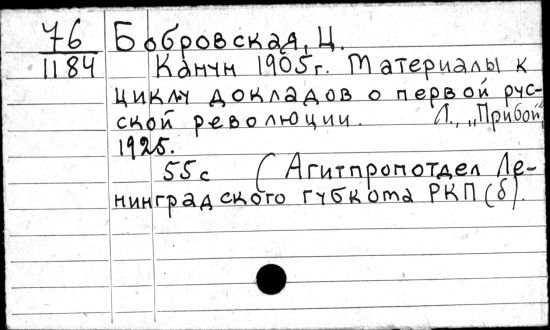 76 Бобровская, Ц.
1184 Канун 1905г. Материалы к
циклу докладов о первой рус-
ской революции. Л., „Прибой"
1925.
55с (Агитпропотдел Ле-
нинградского губкома РКП(б).